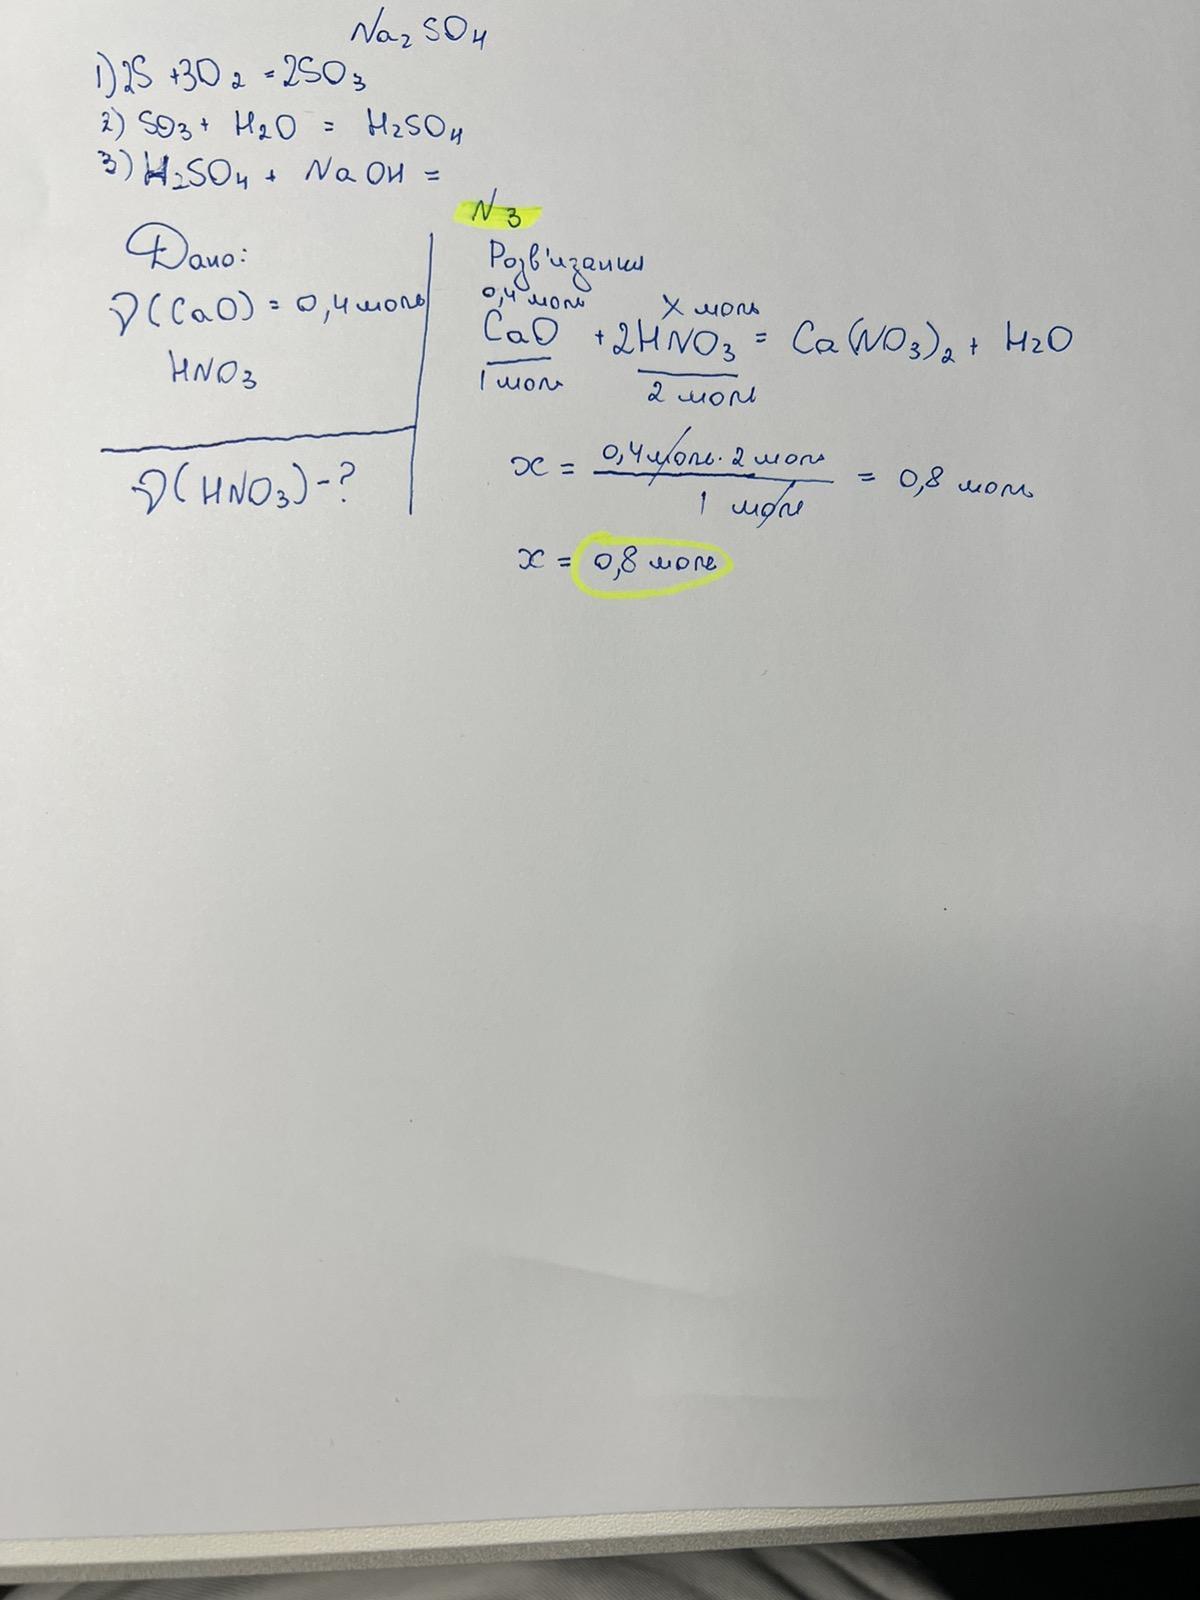 Na₂SO₄
1) 2S + 3O₂ = 2SO₃
2) SO₃ + H₂O = H₂SO₄
3) H₂SO₄ + NaOH =
N3
Дано:
ν(CaO) = 0,4 моль
HNO₃
ν(HNO₃) - ?
Розв'язання
0,4 моль x моль
CaO + 2HNO₃ = Ca(NO₃)₂ + H₂O
1 моль 2 моль
x = 0,4 моль · 2 моль / 1 моль = 0,8 моль
x = 0,8 моль